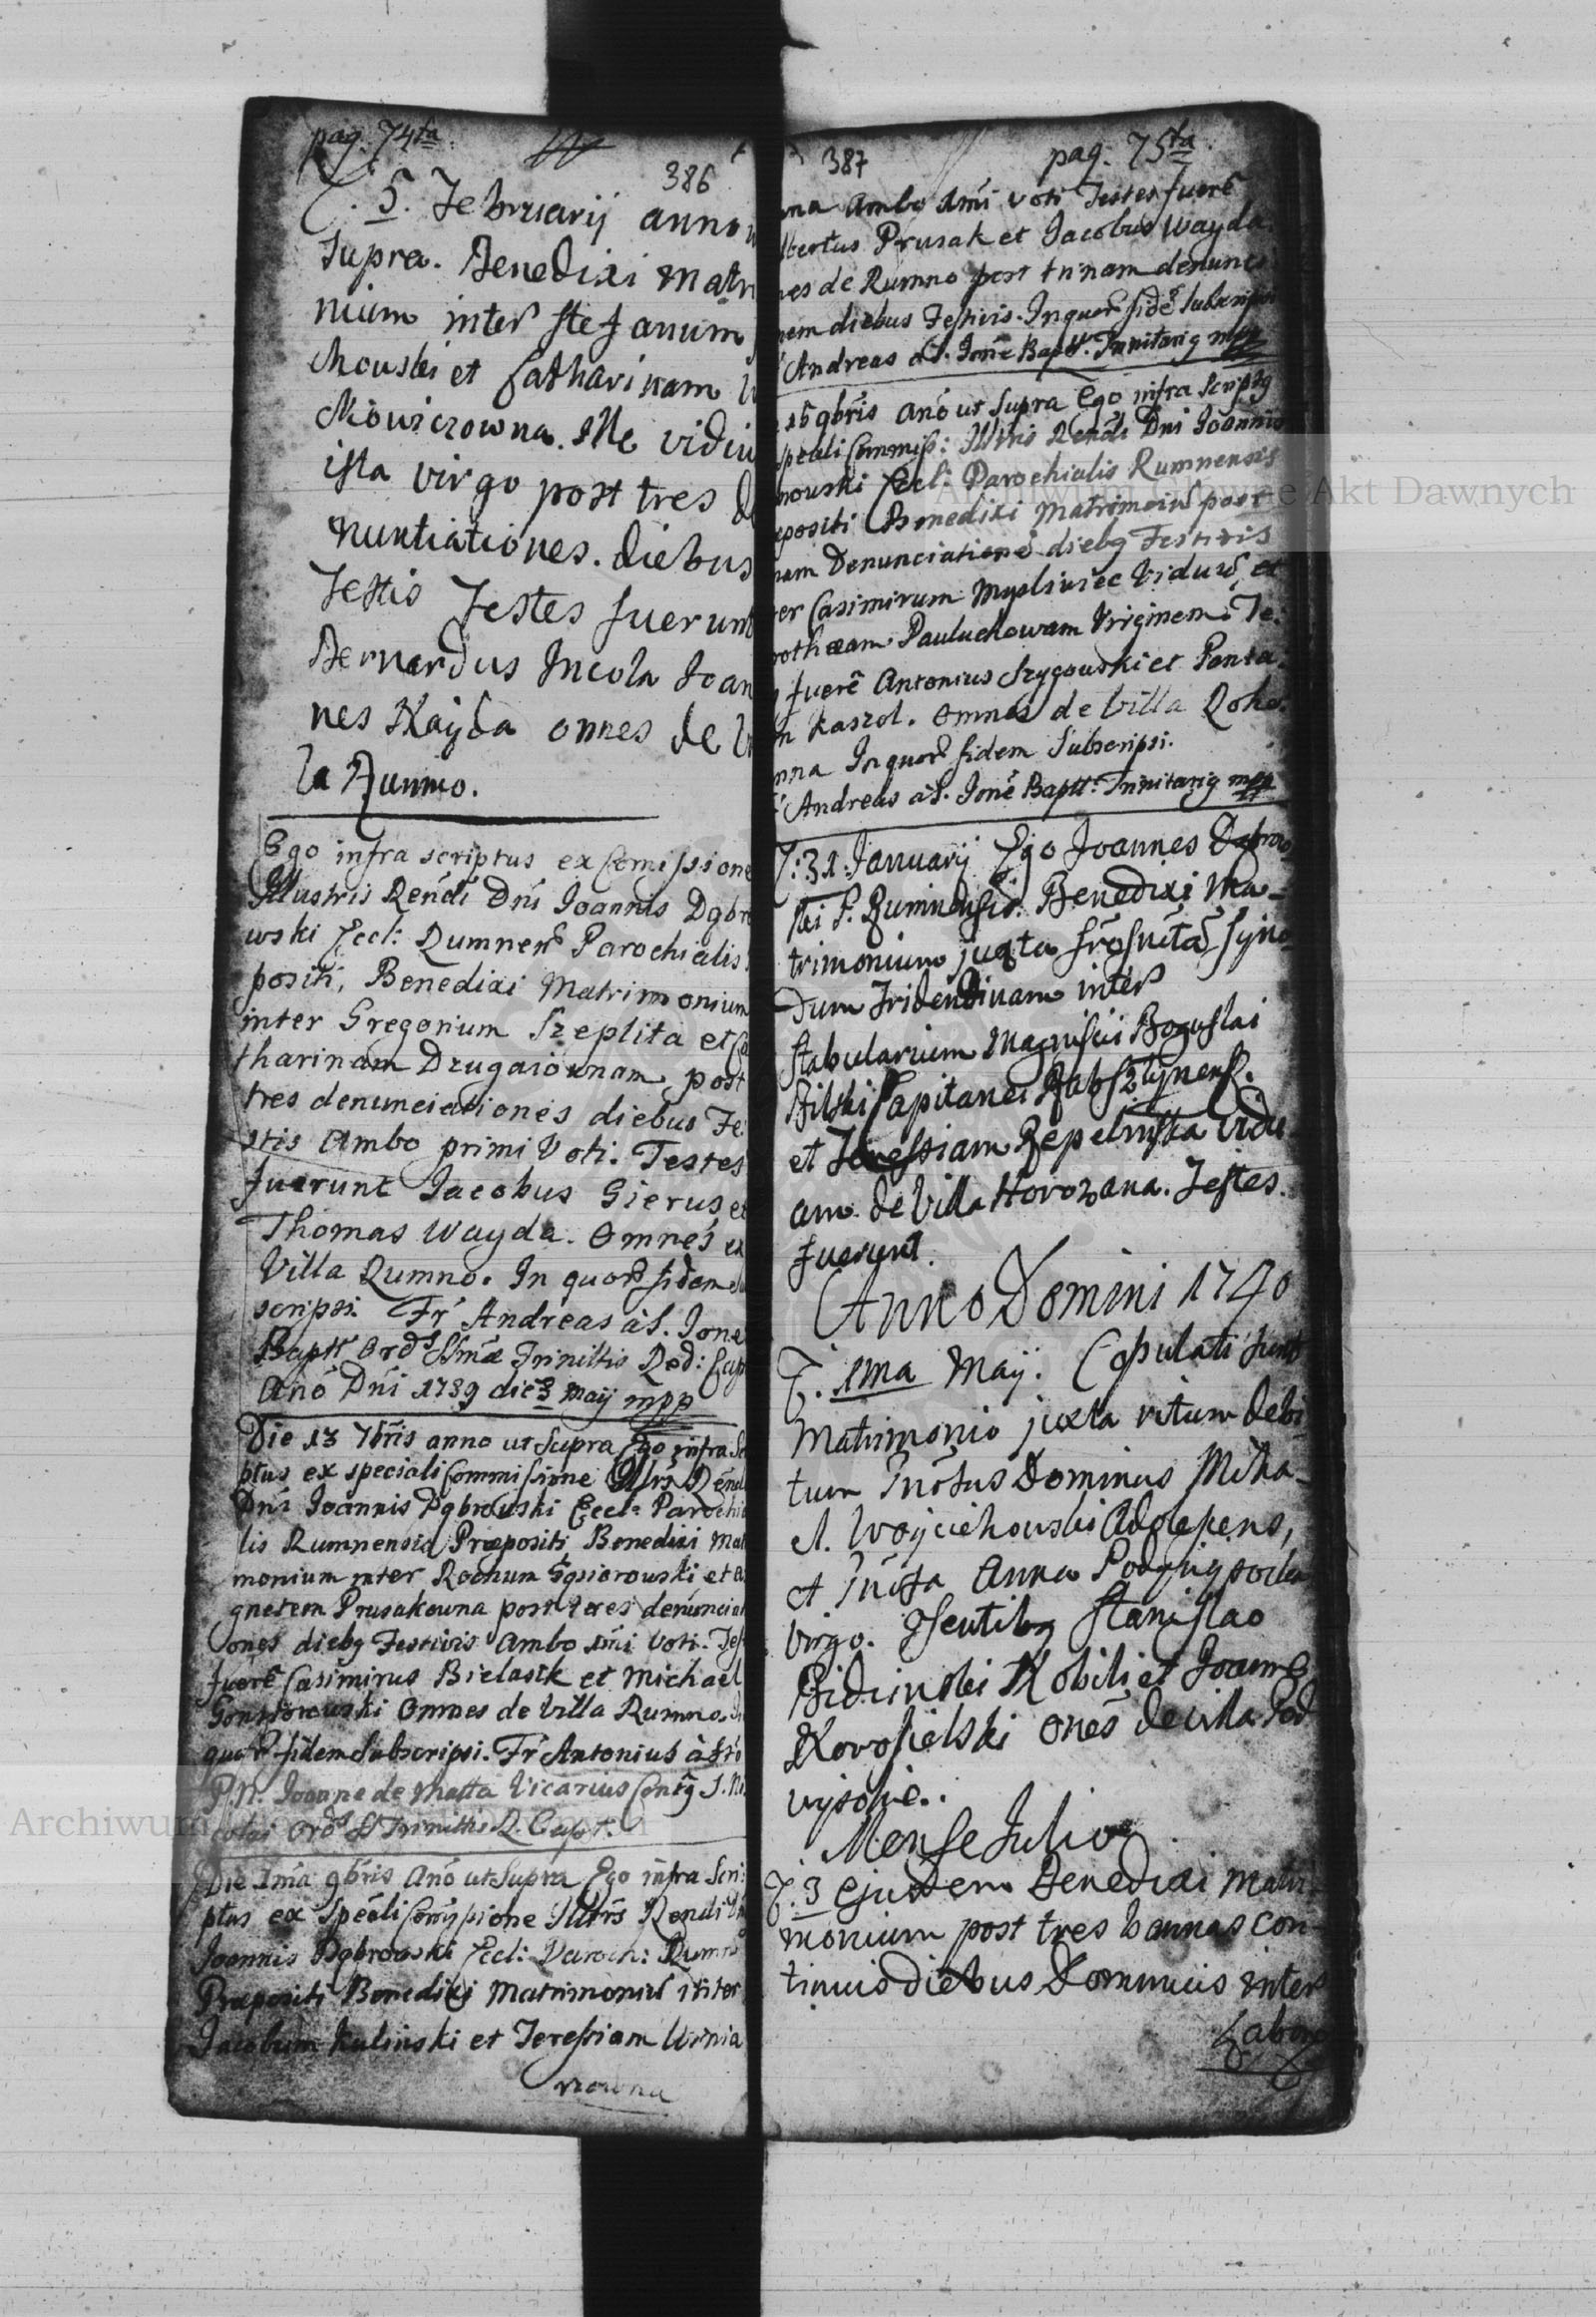 pag. 74ta
386
5. Februarij anno
supra. Benedixi Matri
nium inter Stefanum
chouski et Catharinam
Kiowiczowna. Ille vidiu
ista virgo post tres de
nuntiationes. diebus
Festis Testes fuerunt
Bernardus Incola Joan
nes Wayda omnes de Vi
la Rumno.
Ego infra scriptus ex Comissione
Illustris Rendi Dni Joannis Dąbro
wski Eccl: Rumnen Parochialis
positi, Benedixi Matrimonium
inter Gregorium Szeplita et Ca
tharinam Drugaiownam, post
tres denunciationes diebus Fe
stis Ambo primi Voti. Testes
fuerunt Jacobus Gierus et
Thomas Wayda. Omnes ex
Villa Rumno. In quor fidem su
scripsi. Fr Andreas à S. Jone
Baptt Ord SSmæ Trinittis Red: Cap
Ano Dni 1739 die 3 Maij mpp
Die 13 7bris anno ut supra Ego infra Sc
ptus ex speciali Commissione Illris Rendi
Dni Joannis Dąbrowski Eccl: Parochia
lis Rumnensis Præpositi Benedixi Mat
monium inter Rochum Gąsiorowski et A
gnetem Prusakowna post tres denunciat
ones diebg Festivis Ambo 1mi Voti. Tes
fuere Casimirus Bielasik et Michael
Omnes de Villa Rumno. In
quor fidem Subscripsi. Fr Antonius à Sto
P.N. Joanne de Matta Vicarius Contg S. Ni
colai Ord SS Trinittis R. Capt.
Die 1ma 9bris Ano ut Supra Ego infra Scri
ptus ex Speali Comissione Illtris Rendi Dni
Joannis Dąbrowski Eccl: Paroch: Rumn
Præpositi Benedixi Matrimoniu inter
Jacobum Kulinski et Teressiam Winia
rzowna
387
pag. 75ta
na Ambo 1mi voti Testes fuere
lbertus Prusak et Jacobus Wayda
nes de Rumno post trinam denunci
nem diebus Festivis. In quor fide Subscripsi
Andreas à S. Jone Baptt. Trinitarig mpp
15 9bris Ano ut Supra Ego infra Scriptg
speali Commiss: Illtris Rendi Dni Joannis
rouski Eccl: Parochialis Rumnensis
epositi Benedixi Matrimoniu post
nam Denunciatione diebg Festivis
ter Casimirum Mysliwiec Viduu, et
rotheam Pauluchowam Virginem. Te:
fuere Antonius Szygouski et Panta:
n Kaszol. Omnes de Villa Koho:
nna In quor fidem Subscripsi.
Andreas à S. Jone Baptt. Trinitarig mpp
31. Januarij Ego Joannes Dąbrow
ski P. Rumnensis. Benedixi Ma-
trimonium juxta Srosnctã syno
dum Tridentinam inter
stabularium Magnifici Boguslai
Bilski Capitanei Rabsztynens.
et Teressiam Repelinska Vidu
am de Villa Horozana. Testes
fuerunt.
Anno Domini 1740
1ma Maij. Copulati sunt
Matrimonio juxta ritum debi
tum Gnosus Dominus Micha-
el Woyciehouski Adolescens,
et Gnosa Anna Podwysocka
virgo. Psentibg Stanislao
Bidinski Nobili et Joanne
Korosielski ones de villa Pod
vysokie.
Mense Julio
3 Ejusdem Benedixi Matri
monium post tres bannas con-
tinuis diebus Dominicis inter
Labor